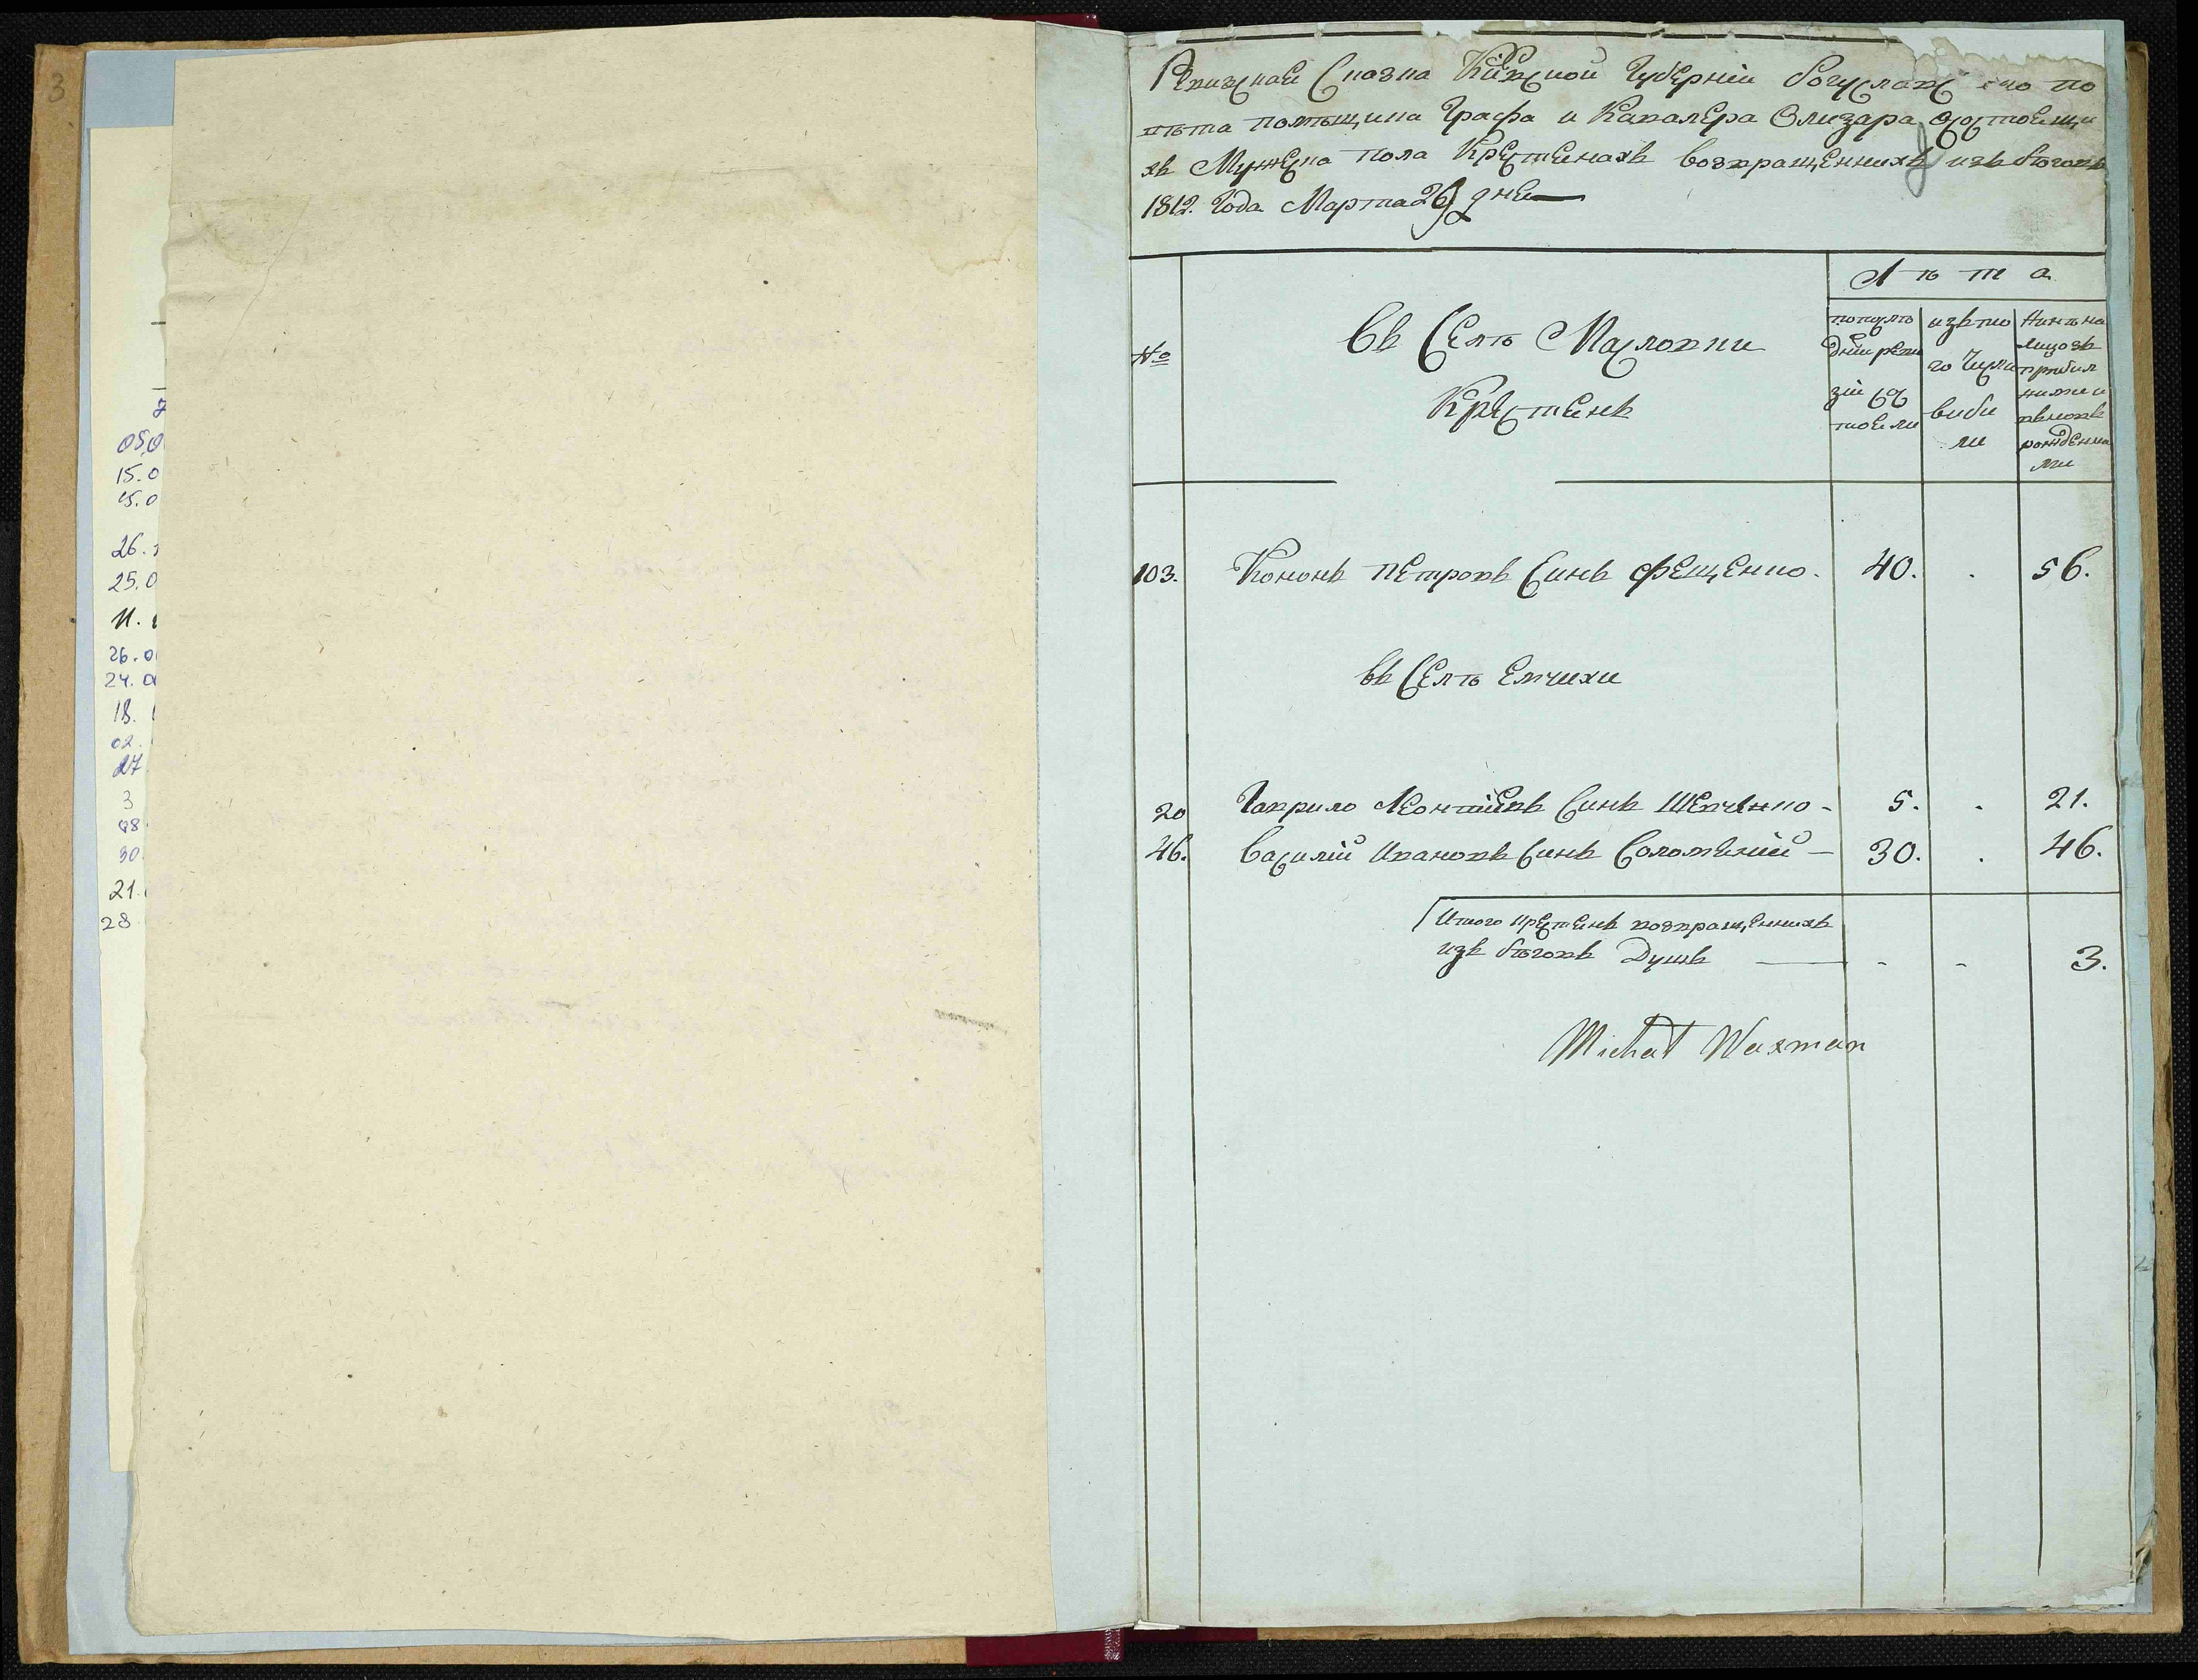 3
05.0
15.0
15.0
26.
25.0
11.
26.0
24.0
18.
02.
27
3
08
30
21.
28
Ревизская Сказка Киевской Губернии Богуславс его по
вѣта помѣщика Графа и Кавалера Олизара о состоящи
хъ Мужеска пола Крестянахъ возвращеннихъ изъ бѣговъ
1812. Года Марта 26 дня
№
Въ Селѣ Масловки
Крестянъ
Лѣта
попослѣ
дней реви
зіи со
стояли
изъ то
го числа
виби
ли
Нинѣ на
лицо зъ
прибил
ними и
вновь
рожденни
ми
103. Кононъ Петровъ Синъ Фещенко. 40. . 56.
въ Селѣ Емчихи
20 Гаврило Леонтіевъ Синъ Шевченко - 5. . 21.
46. Василій Ивановъ Синъ Соломяній - 30. . 46.
Итого крестянъ возвращеннихъ
изъ бѣговъ Душъ - - 3.
Michał Waxman